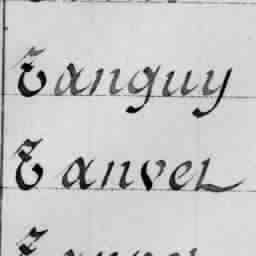 Tanguy
Tanvel